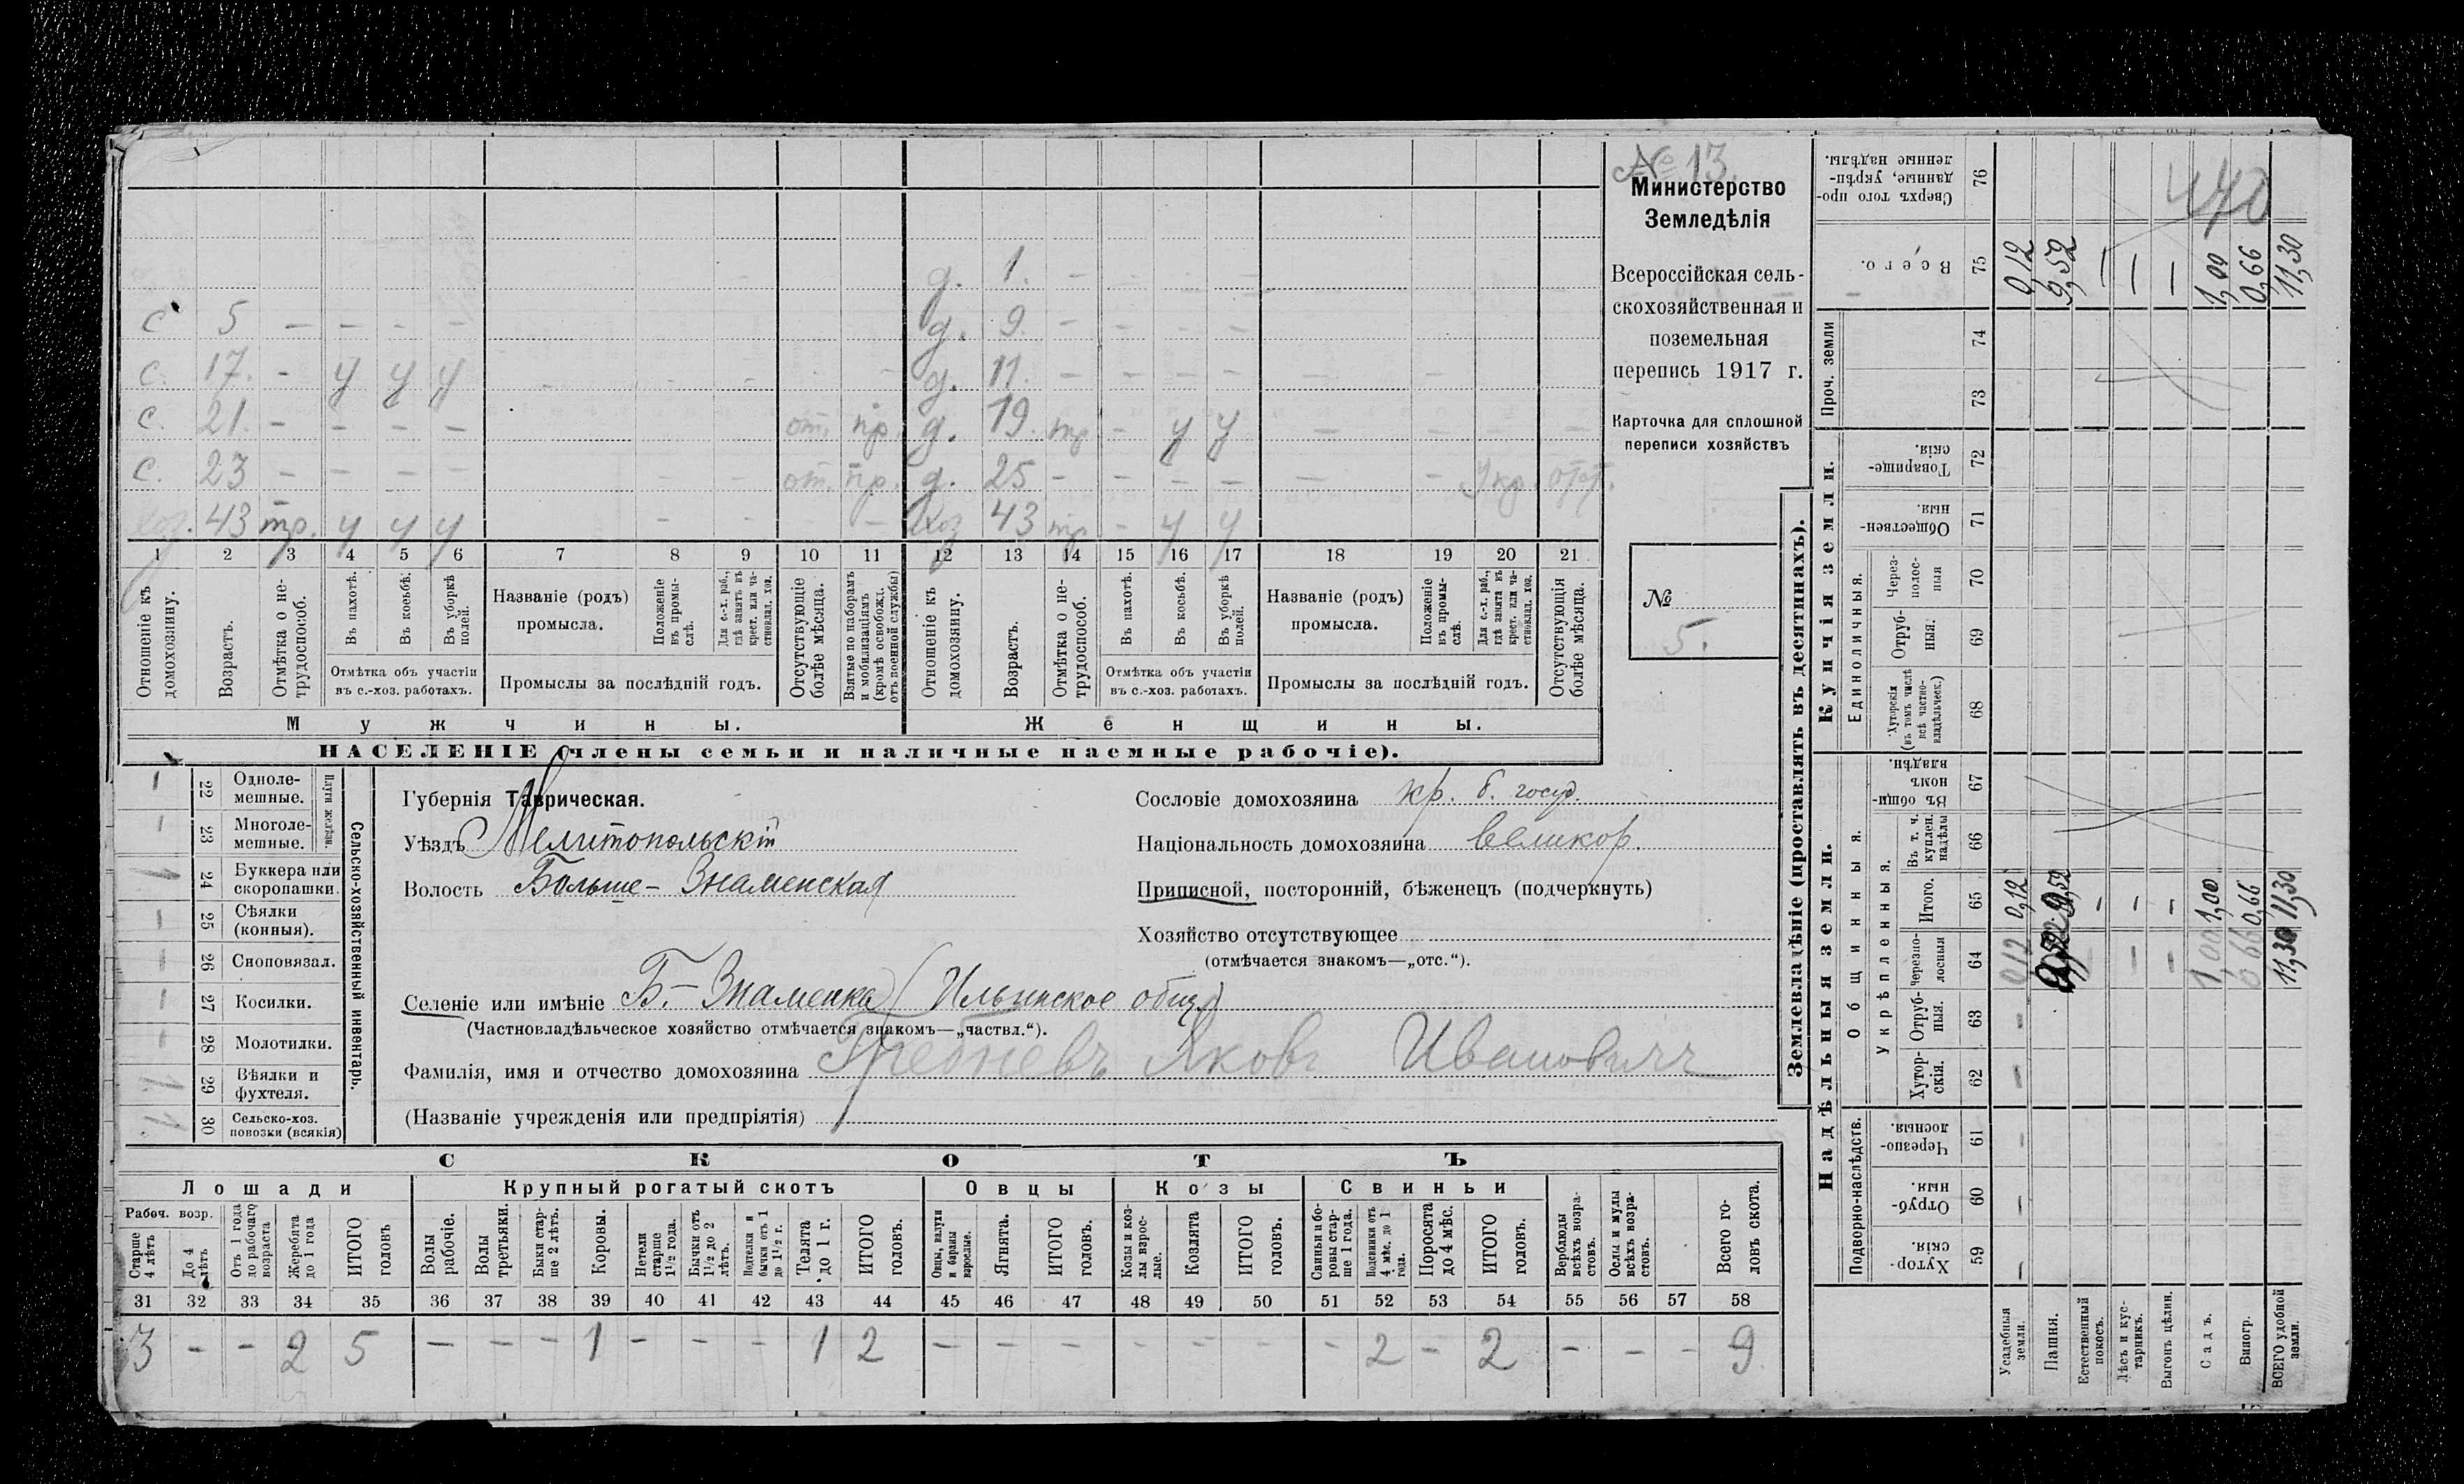 № 13.
Министерство
Земледѣлія
Всероссійская сель-
скохозяйственная и
поземельная
перепись 1917 г.
Карточка для сплошной
переписи хозяйствъ
№
5.
д. 1. -
с 5 - - - - д. 9 - - - -
с. 17. - у у у - - - - - д. 11 - - - - - -
с. 21. - - - - от. пр. д. 19. тр - у у - - - -
с. 23 - - - - - - от. пр. д. 25 - - - - - - Укр. отст.
хоз. 43 тр. у у у - - - - хоз 43 тр - у у
1 2 3 4 5 6 7 8 9 10 11 12 13 14 15 16 17 18 19 20 21
Отношеніе къ домохозяину.
Возрастъ.
Отмѣтка о не-трудоспособ.
Въ пахотѣ.
Въ косьбѣ.
Въ уборкѣ полей.
Отмѣтка объ участіи
въ с.-хоз. работахъ.
Названіе (родъ)
промысла.
Положеніе въ промы-слѣ.
Для с.-х. раб., гдѣ занятъ въ крест. или ча-стновлад. хоз.
Промыслы за послѣдній годъ.
Отсутствующіе болѣе мѣсяца.
Взятые по наборамъ и мобилизаціямъ (кромѣ освобожд. отъ военной службы)
Отношеніе къ домохозяину.
Возрастъ.
Отмѣтка о не-трудоспособ.
Въ пахотѣ.
Въ косьбѣ.
Въ уборкѣ полей.
Отмѣтка объ участіи
въ с.-хоз. работахъ.
Названіе (родъ)
промысла.
Положеніе въ промы-слѣ.
Для с.-х. раб., гдѣ занята въ крест. или ча-стновлад. хоз.
Промыслы за послѣдній годъ.
Отсутствующія болѣе мѣсяца.
Мужчины. Женщины.
НАСЕЛЕНІЕ (члены семьи и наличные наемные рабочіе).
Сельско-хозяйственный инвентарь.
Плуги желѣзн.
1 22 Одноле-мешные.
1 23 Многоле-мешные.
24 Буккера или скоропашки.
- 25 Сѣялки (конныя).
- 26 Сноповязал.
- 27 Косилки.
- 28 Молотилки.
29 Вѣялки и фухтеля.
30 Сельско-хоз. повозки (всякія)
Губернія Таврическая.
Уѣздъ Мелитопольскій
Волость Больше-Знаменская
Сословіе домохозяина кр. б. госуд.
Національность домохозяина великор.
Приписной, посторонній, бѣженецъ (подчеркнуть)
Хозяйство отсутствующее
(отмѣчается знакомъ—„отс.“).
Селеніе или имѣніе Б.-Знаменка (Ильинское общ.)
(Частновладѣльческое хозяйство отмѣчается знакомъ—„частвл.“).
Фамилія, имя и отчество домохозяина Гребневъ Яковъ Ивановичъ
(Названіе учрежденія или предпріятія)
СКОТЪ
Лошади Крупный рогатый скотъ Овцы Козы Свиньи
Рабоч. возр.
Старше 4 лѣтъ
До 4 лѣтъ
Отъ 1 года до рабочаго возраста
Жеребята до 1 года
ИТОГО головъ
Волы рабочіе.
Волы третьяки.
Быки стар-ше 2 лѣтъ.
Коровы.
Нетели старше 1½ года.
Бычки отъ 1½ до 2 лѣтъ.
Подтелки и бычки отъ 1 до 1½ г.
Телята до 1 г.
ИТОГО головъ.
Овцы, валухи и бараны взрослые.
Ягнята.
ИТОГО головъ.
Козы и коз-лы взрос-лые.
Козлята
ИТОГО головъ.
Свиньи и бо-ровы стар-ше 1 года.
Подсвинки отъ 4 мѣс. до 1 года.
Поросята до 4 мѣс.
ИТОГО головъ.
Верблюды всѣхъ возра-стовъ.
Ослы и мулы всѣхъ возра-стовъ.
Всего го-ловъ скота.
31 32 33 34 35 36 37 38 39 40 41 42 43 44 45 46 47 48 49 50 51 52 53 54 55 56 57 58
3 - - 2 5 - - - 1 - - - 1 2 - - - - - - - 2 - 2 - - - 9
Землевладѣніе (проставлять въ десятинахъ).
Надѣльныя земли.
Купчія земли.
Проч. земли
Подворно-наслѣдств.
Общинныя.
Укрѣпленныя.
Единоличныя.
Хутор-скія. 59
Отруб-ныя. 60
Черезпо-лосныя. 61
Хутор-скія. 62
Отруб-ныя. 63
Черезпо-лосныя 64
Итого. 65
Въ т. ч. куплен. надѣлы 66
Въ общи-номъ владѣн. 67
Хуторскія (въ томъ числѣ всѣ частно-владѣльческ.) 68
Отруб-ныя. 69
Через-полос-ныя 70
Обществен-ныя. 71
Товарище-скія. 72
73
74
Всего. 75
Сверхъ того про-данные, укрѣп-ленные надѣлы. 76
470
Усадебныя земли. - - - - - 0,12 0,12 0,12
Пашня. 9,52 9,52
Естественный покосъ. - -
Лѣсъ и кус-тарникъ. - - -
Выгонъ цѣлин. - - -
Садъ. 1,00 1,00 1,00
Виногр. 0,66 0,66 0,66
ВСЕГО удобной земли. 11,30 11,30 11,30